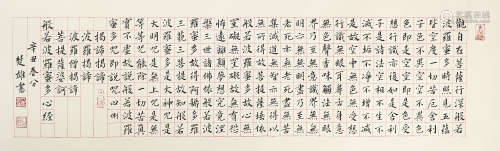 觀自在菩薩行深般若
波羅蜜多時照見五蘊
皆空度一切苦厄舍利
子色不異空空不異色
色即是空空即是色受
想行識亦復如是舍利
子是諸法空相不生不
滅不垢不淨不增不減
是故空中無色無受想
行識無眼耳鼻舌身意
無色聲香味觸法無眼
界乃至無意識界無無
明亦無無明盡乃至無
老死亦無老死盡無苦
集滅道無智亦無得以
無所得故菩提薩埵依
般若波羅蜜多故心無
罣礙無罣礙故無有恐
怖遠離顛倒夢想究竟涅
槃三世諸佛依般若波
羅蜜多故得阿耨多羅
三藐三菩提故知般若
波羅蜜多是大神咒是
大明咒是無上咒是無
等等咒能除一切苦真
實不虛故說般若波羅
蜜多咒即說咒曰
揭諦揭諦
波羅揭諦
波羅僧揭諦
菩提薩婆訶
般若波羅蜜多心經
辛丑春分
楚雄書